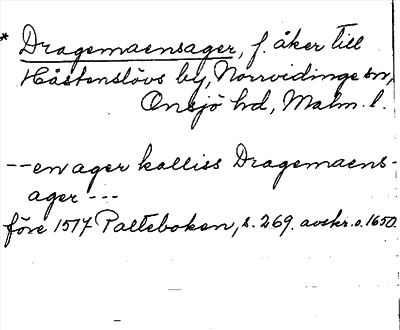 * Dragemaensager, f. åker till
Håstenslövs by, Norrvidinge sn,
Onsjö hd, Malm. l.
-- en ager kalliss Dragemaens-
ager ---
före 1517 Palteboken, s. 269. avskr. o. 1650.